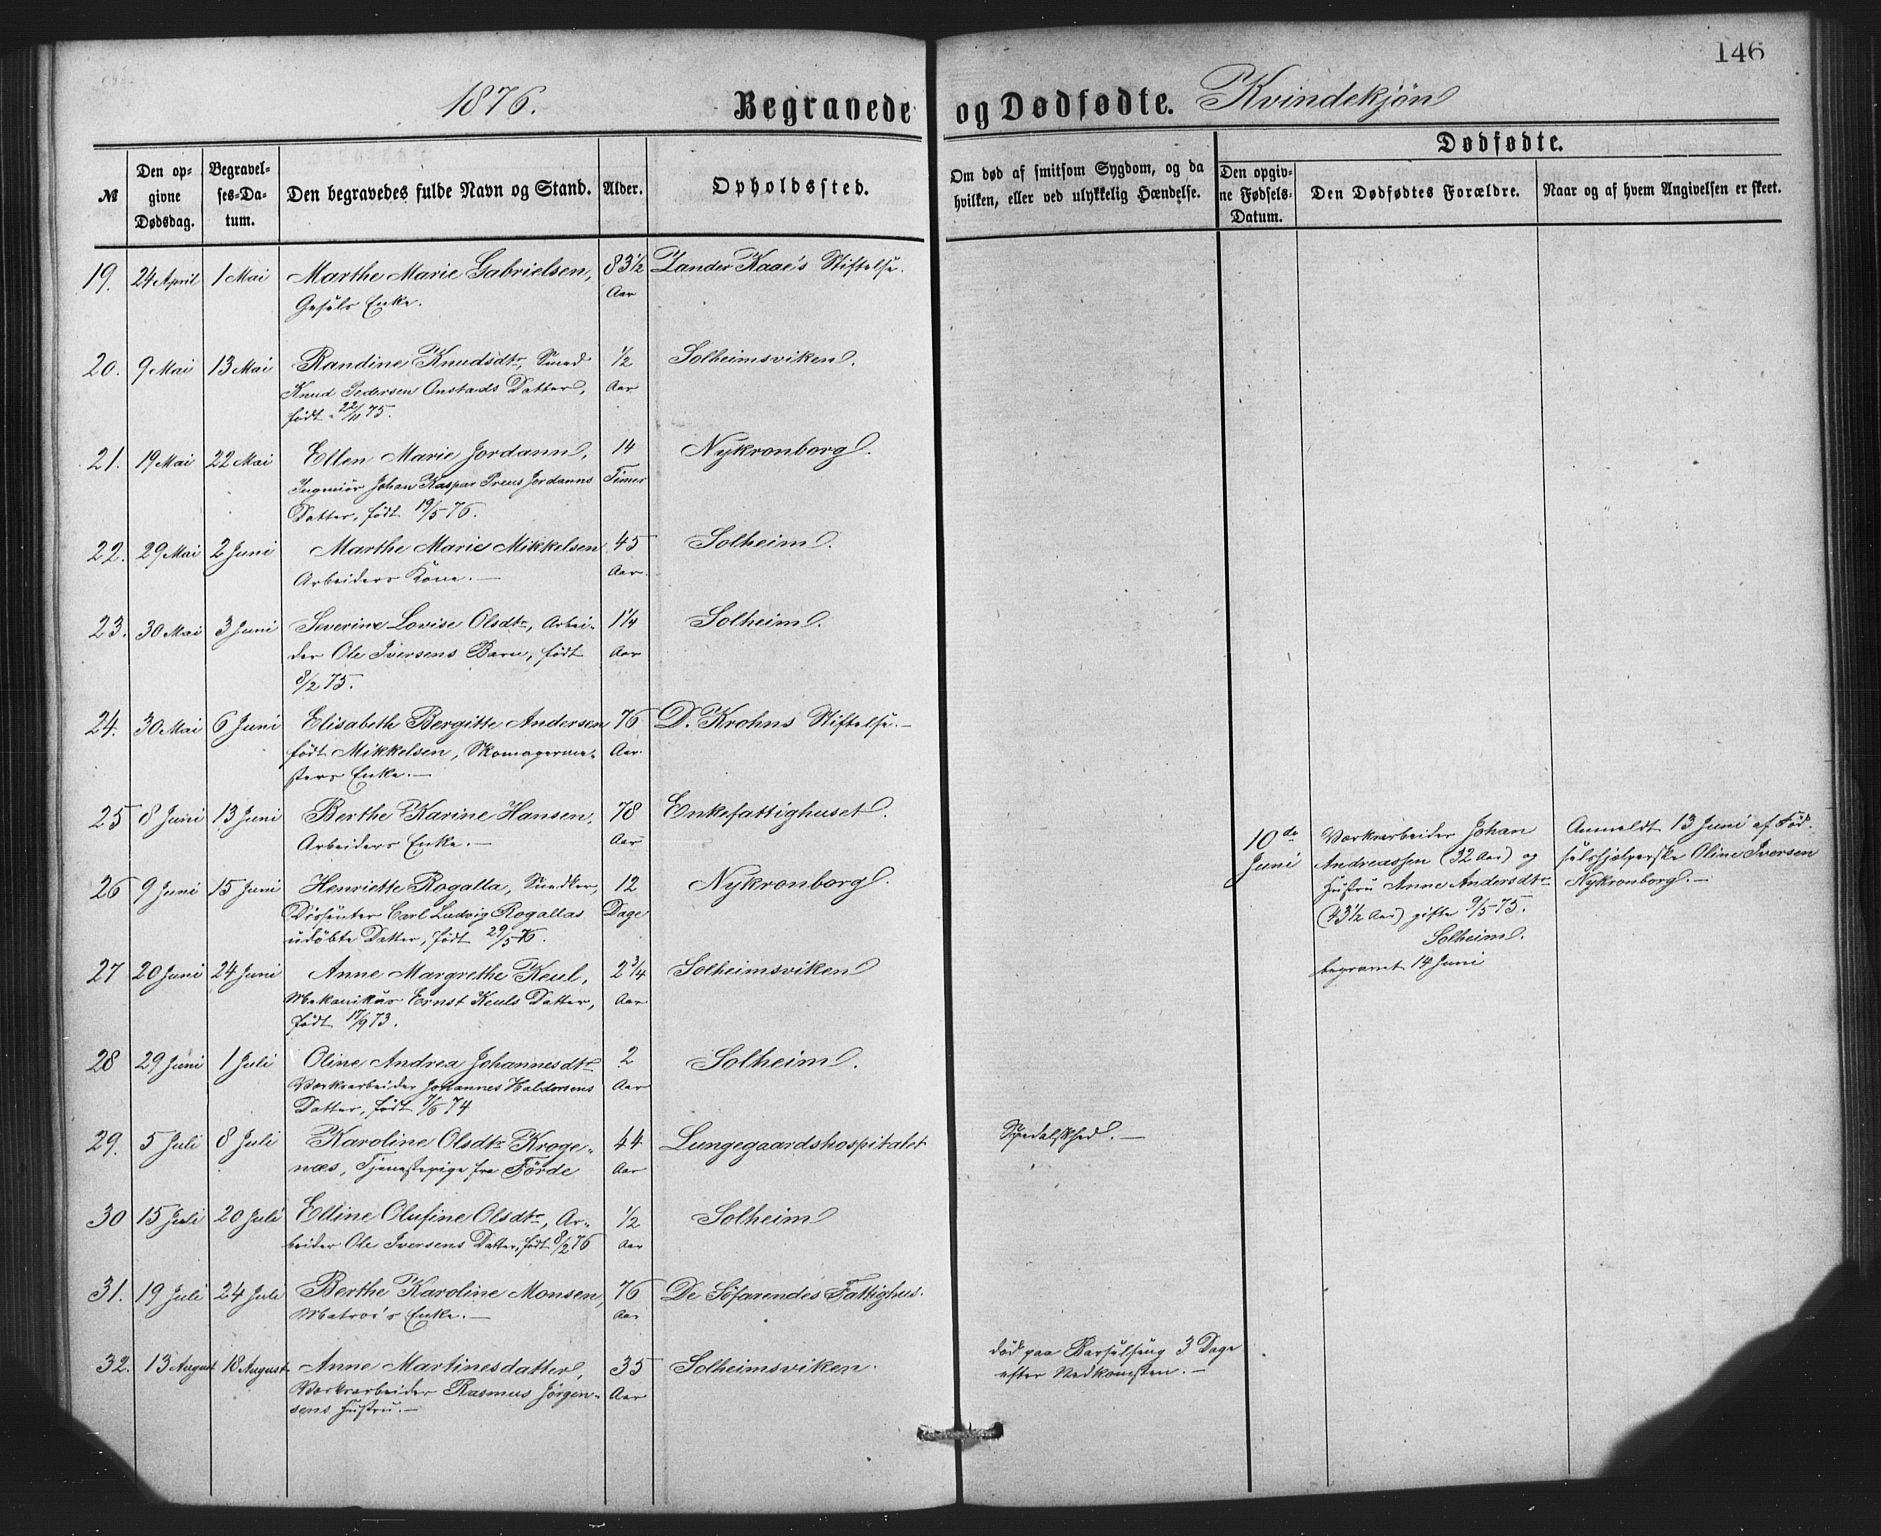 146
1876. Begravede og Dødfødte. Kvindekjøn
Dødfødte.
№
Den opgivne Dødsdag.
Begravelses-Datum.
Den begravedes fulde Navn og Stand.
Alder.
Opholdssted.
Om død af smitsom Sygdom, og da hvilken, eller ved ulykkelig Hændelse.
Den opgivne Fødsels-Datum.
Den Dødfødtes Forældre.
Naar og af hvem Angivelsen er skeet.
19. 24 April 1 Mai Marthe Marie Gabrielsen, 83½ Zander Kaae's Stiftelse.
Enke. Aar
20. 9 Mai 13 Mai Randine Knudsdtr, Smed ½ Solheimsviken.
Knud Pedersen Onstads Datter, Aar
født 22/11 75.
21. 19 Mai 22 Mai Ellen Marie Jordann, 14 Nykronborg.
Ingeniør Johan Kaspar Preus Jordanns Timer
Datter, født 19/5 76.
22. 29 Mai 2 Juni Marthe Marie Mikkelsen 45 Solheim.
Arbeiders Kone.— Aar.
23. 30 Mai 3 Juni Severine Lovise Olsdtr, Arbei- 1¼ Solheim.
der Ole Iversens Barn, født Aar
8/2 75.
24. 30 Mai 6 Juni Elisabeth Bergitte Andersen 76 D. Krohns Stiftelse.—
født Mikkelsen, Skomagerme- Aar.
sters Enke.—
25 8 Juni 13 Juni Berthe Karine Hansen, 78 Enkefattighuset.
Arbeiders Enke.— Aar
26 9 Juni 15 Juni Henriette Rogalla, Snedker, 12 Nykronborg.
Dissenter Carl Ludvig Rogallas Dage
udøbte Datter, født 29/5 76.
10de Juni
Værkarbeider Johan
Andreassen (32 Aar) og
Hustru Anne Andersdtr
(43½ Aar) gifte 9/5 75.
Solheim.
begravet 14 Juni
Anmeldt 13 Juni af Fød-
selshjælperske Oline Iversen
Nykronborg.—
27 20 Juni 24 Juni Anne Margrethe Keul, 2¾ Solheimsviken
Mekanikus Ernst Keuls Datter, Aar
født 17/9 73.
28 29 Juni 1 Juli Oline Andrea Johannesdtr 2 Solheim.
Værkarbeider Johannes Haldorsens Aar
Datter, født 7/6 74
29. 5 Juli 8 Juli Karoline Olsdtr Kroge- 44 Lungegaardshospitalet Spedalskhed.—
næs, Tjenestepige fra Förde Aar
30 15 Juli 20 Juli Elline Olufine Olsdtr, Ar- ½ Solheim
beider Ole Iversens Datter, født 8/2 76 Aar
31. 19 Juli 24 Juli Berthe Karoline Monsen, 76 De Söfarendes Fattighus.
Matros's Enke.— Aar
32. 13 August 18 August Anne Martinesdatter, 35 Solheimsviken. død paa Barselseng 3 Dage
Værkarbeider Rasmus Jörgen- Aar efter Nedkomsten.—
sens Hustru.—